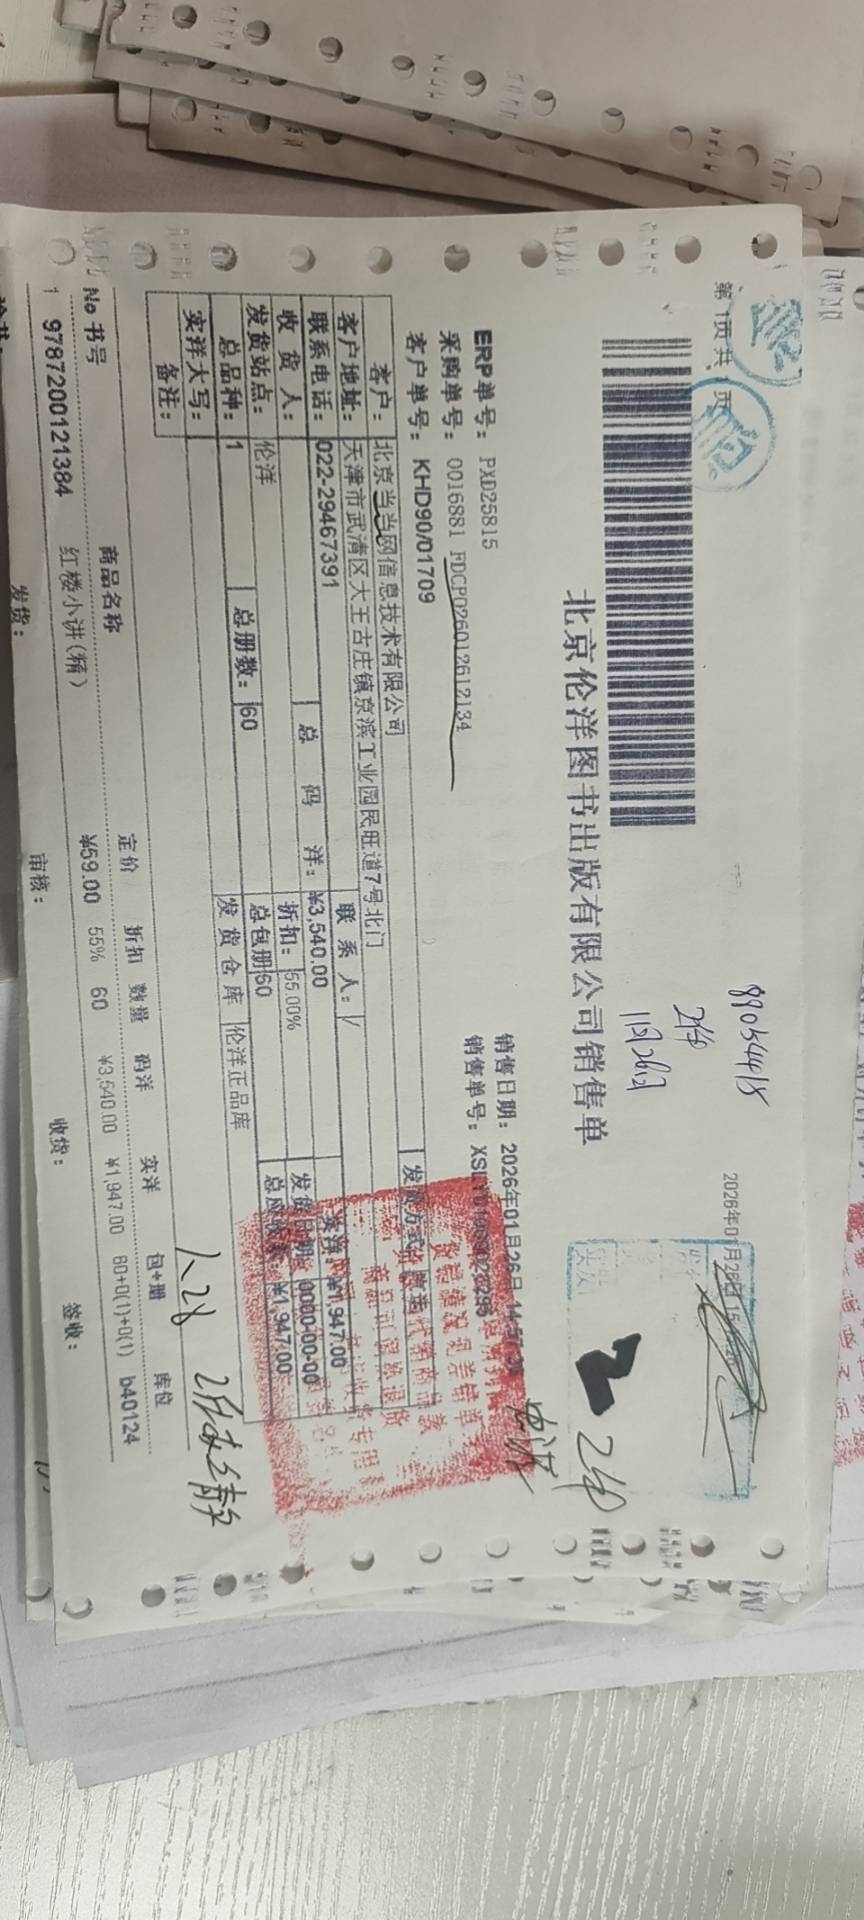 第 1页 共 1页
2026年01月26日 15
89054415
2件
1月26日
北京伦洋图书出版有限公司销售单
2件
ERP单号： PXD25815
销售日期： 2026年01月26日 14:57
采购单号： 0016881 FDCP026012612134
销售单号：
客户单号： KHD90/01709
客户： 北京当当网信息技术有限公司
发货方式：
客户地址： 天津市武清区大王古庄镇京滨工业园民旺道7号北门
联系电话： 022-29467391
联 系 人： /
收 货 人：
总 码 洋： ¥3,540.00
实洋： ¥1,947.00
发货站点： 伦洋
折扣： 55.00%
发货日期： 0000-00-00
总品种： 1
总册数： 60
总包册 60
总应收款： ¥1,947.00
实洋大写：
发 货 仓 库 伦洋正品库
备注：
1.28
No 书号 商品名称 定价 折扣 数量 码洋 实洋 包+册 库位
1 9787200121384 红楼小讲(精) ¥59.00 55% 60 ¥3,540.00 ¥1,947.00 60+0(1)+0(1) b40124
发货： 审核： 收货： 签收：